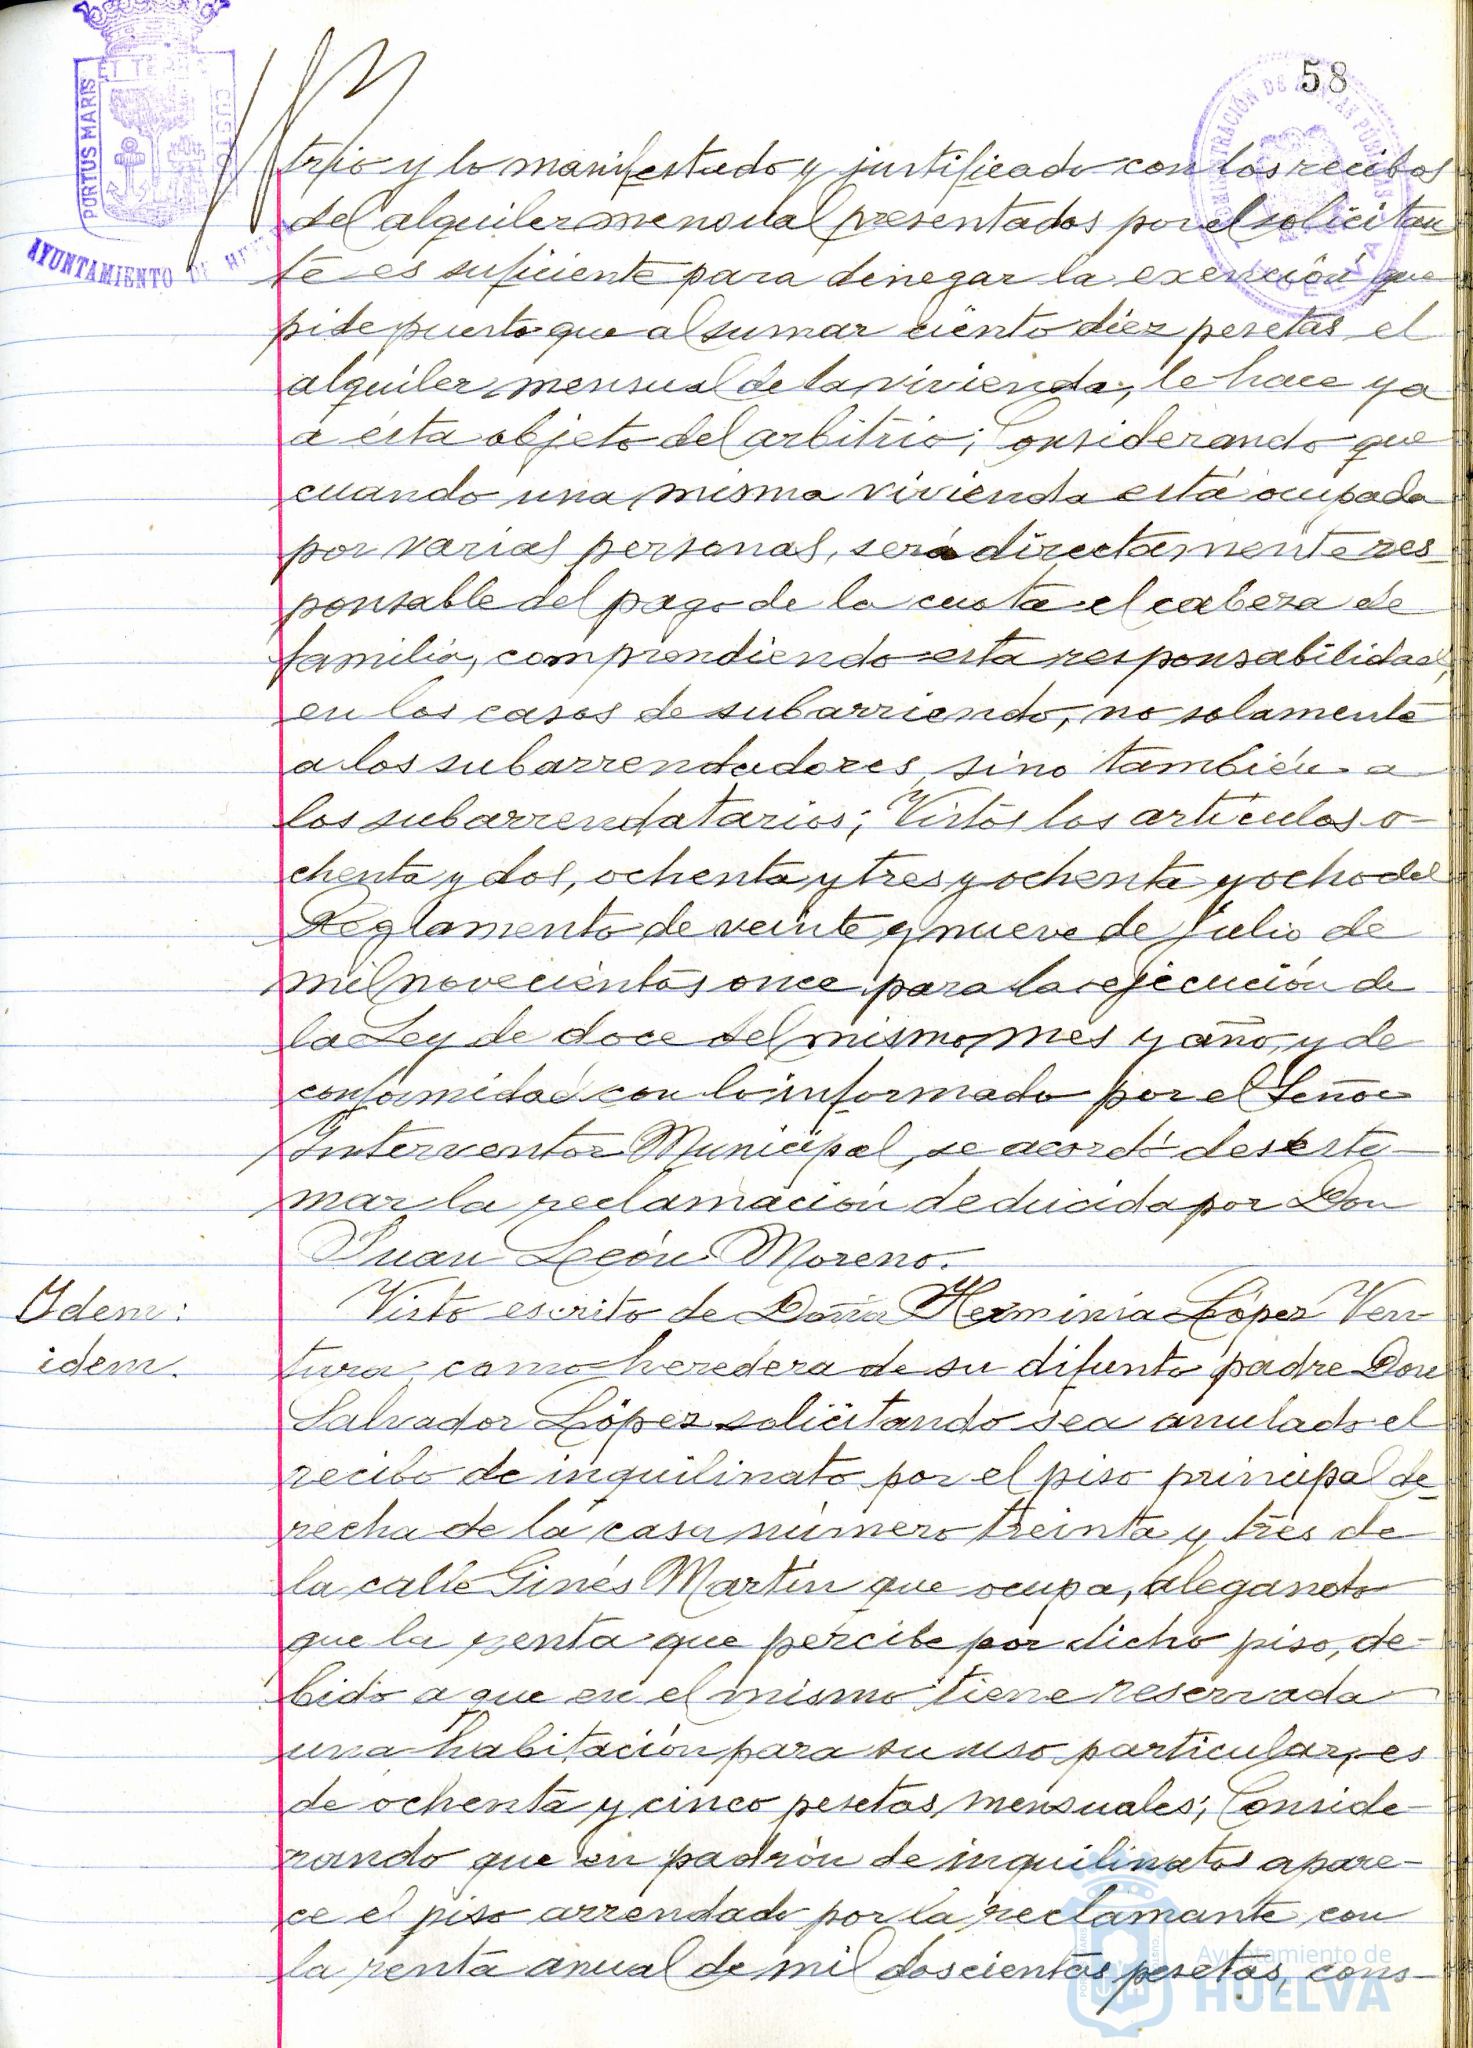 58
PORTUS MARIS ET TERRÆ CUSTO
AYUNTAMIENTO DE
trio y lo manifestado y justificado con los recibos
del alquiler mensual presentados por el solicitan
te es suficiente para denegar la exención que
pide puesto que al sumar ciento diez pesetas el
alquiler mensual de la vivienda, le hace ya
a ésta objeto del arbitrio; Considerando que
cuando una misma vivienda está ocupada
por varias personas, será directamente res-
ponsable del pago de la cuota el cabeza de
familia, comprendiendo esta responsabilidad,
en los casos de subarriendo, no solamente
a los subarrendadores, sino también a
los subarrendatarios; Vistos los artículos o-
chenta y dos, ochenta y tres y ochenta y ocho del
Reglamento de veinte y nueve de Julio de
mil novecientos once para la ejecución de
la Ley de doce del mismo mes y año, y de
conformidad con lo informado por el Señor
Interventor Municipal, se acordó desesti-
mar la reclamación deducida por Don
Juan León Moreno.
Idem:
idem.
Visto escrito de Doña Herminia López Ven-
tura, como heredera de su difunto padre Don
Salvador López solicitando sea anulado el
recibo de inquilinato por el piso principal de-
recha de la casa número treinta y tres de
la calle Ginés Martín que ocupa, alegando
que la renta que percibe por dicho piso, de-
bido a que en el mismo tiene reservada
una habitación para su uso particular, es
de ochenta y cinco pesetas mensuales; Conside-
rando que en padrón de inquilinatos apare-
ce el piso arrendado por la reclamante con
la renta anual de mil doscientas pesetas, cons-
Ayuntamiento de
HUELVA